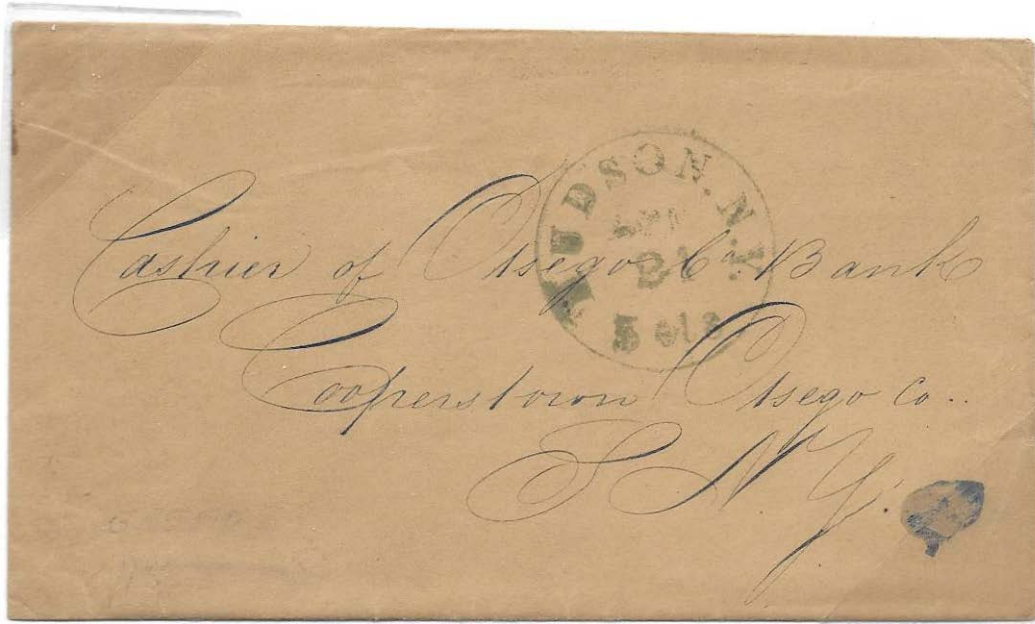 HUDSON. N.Y.
21
5 cts
Cashier of Otsego Co Bank
Cooperstown Otsego Co..
S N Y.